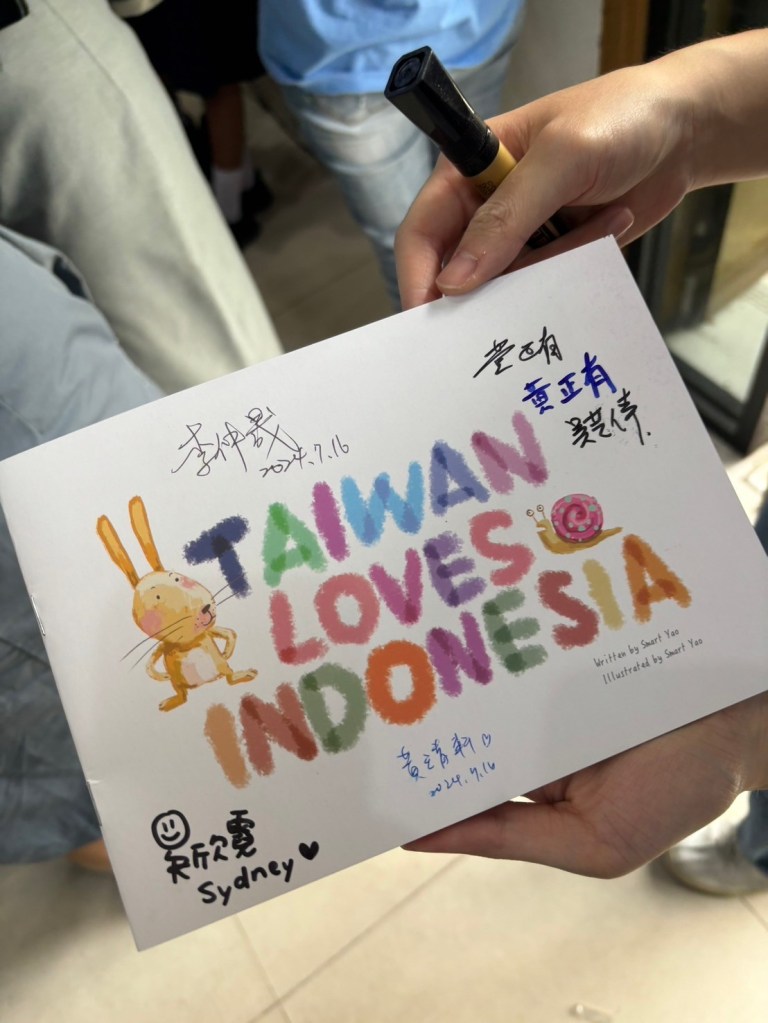 黄正有
李仲晟
2024.7.16
TAIWAN
LOVES
INDONESIA
Written by Smart Yoo
Illustrated by Smart Yoo
2024.7.16
欣霓
Sydney ♥